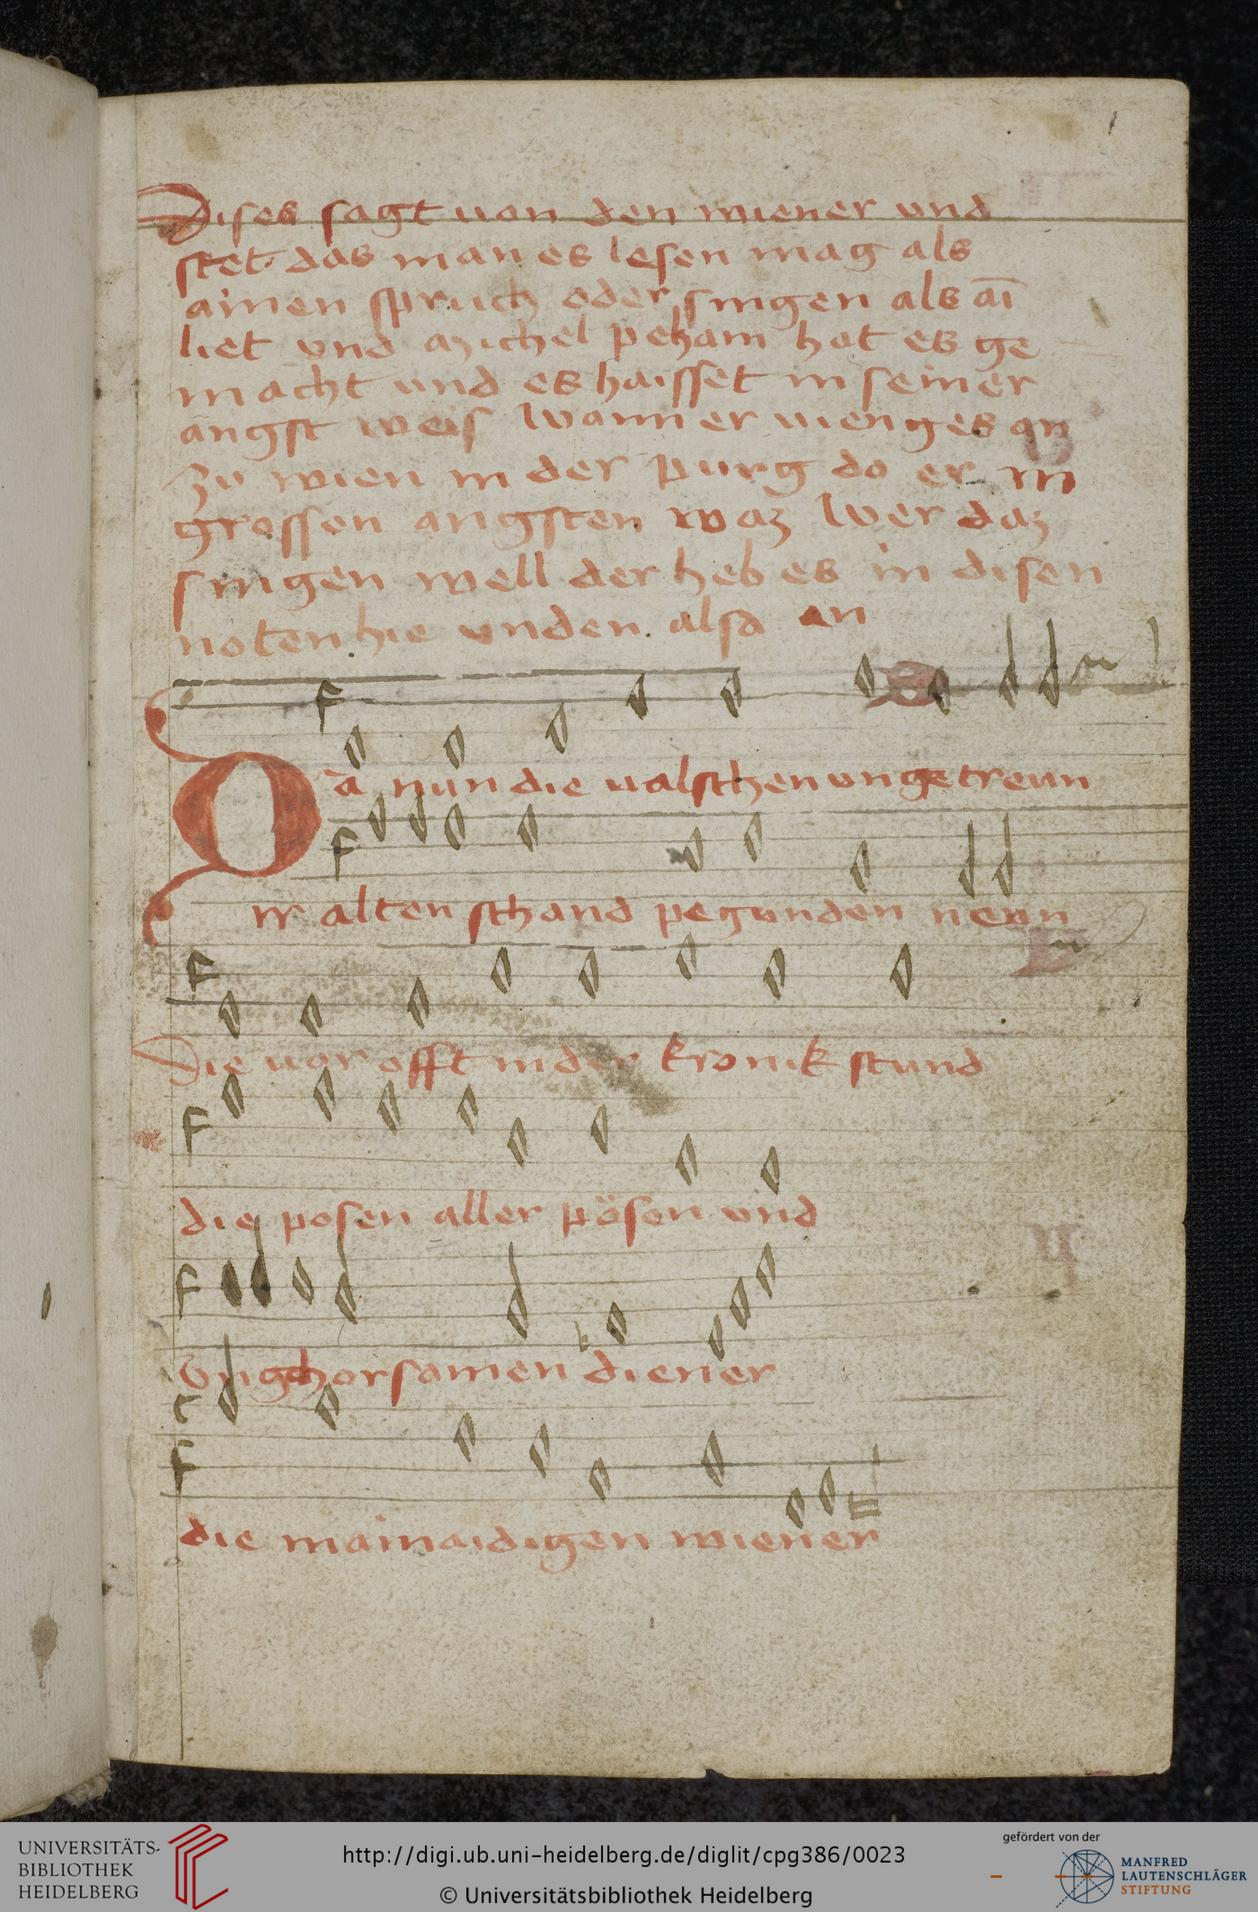 1
Dises sagt uon den wiener vnd
stet das man es lesen mag als
ainen spruch oder singen als aī
liet vnd michel peham hat es ge
macht und es haisset in seiner
angst weis wann er uieng es an
zu wien in der purg do er in
grossen angsten waz wer daz
singen well der heb es in disen
noten hie vnden also an
Da nun die ualschen vngetreun
ir alten schand pegunden neun
Die uor offt in der kronik stund
die posen aller pösen vnd
Vnghorsamen diener
die mainaidigen wiener
UNIVERSITÄTS-
BIBLIOTHEK
HEIDELBERG
http://digi.ub.uni-heidelberg.de/diglit/cpg386/0023
© Universitätsbibliothek Heidelberg
gefördert von der
MANFRED
LAUTENSCHLÄGER
STIFTUNG